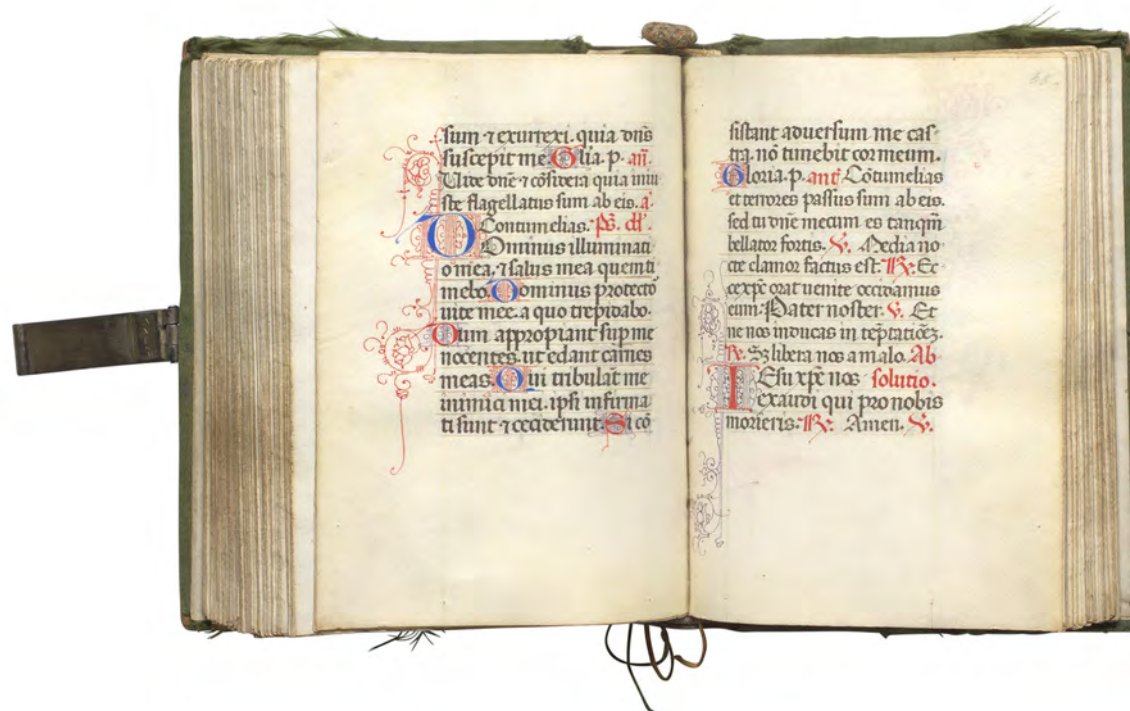 sum ⁊ exurrexi. quia dn̄s
suscepit me. Glīa. p. an̄.
Vide dn̄e ⁊ cōsidera quia iniu
ste flagellatus sum ab eis. a᷑.
Contumelias. Ps̄. dd̄.
Dominus illuminati
o mea. ⁊ salus mea quem ti
mebo. Dominus protectoᷣ
uite mee. a quo trepidabo.
Dum appropiant sup me
nocentes. ut edant carnes
meas. Qui tribulāt me
inimici mei. ipsi infirma
ti sunt ⁊ ceciderunt. Si cō
sistant aduersum me cas-
tra. nō timebit cor meum.
Gloria. p. ant̄ Cōtumelias
et terrores passus sum ab eis.
sed tu dn̄e mecum es tanqm̄
bellator fortis. ℣. Media no
cte clamor factus est. ℟. Ec
ce xp̄e orat uenite occidamus
eum. Pater noster. ℣. Et
ne nos inducas in tēptationēꝫ.
℟. Sꝫ libera nos a malo. Ab
Iesu xp̄e nos solutio.
exaudi qui pro nobis
morieris. ℟. Amen. ℣.